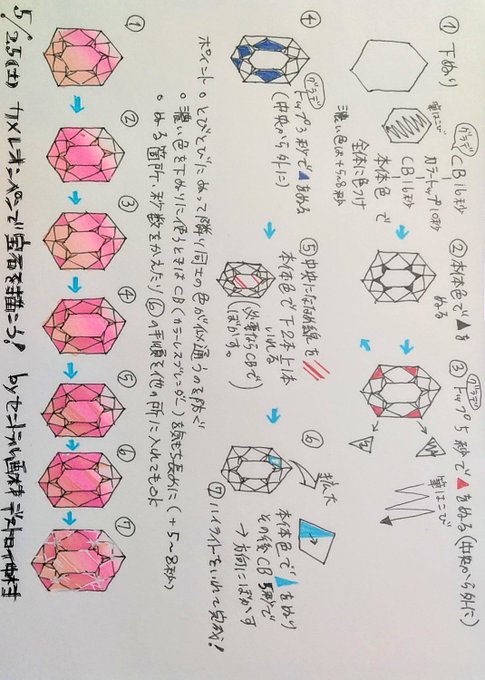 ① 下ぬり
筆はこび
グラデ
CB 16秒
カラートップ10秒
CB 16秒
本体色で
全体に色つけ
濃い色は+5~8秒
② 本体色で▲を
ぬる
③ グラデ
トップ5秒で▲をぬる(中央から外に)
筆はこび
④ グラデ
トップ3秒で▲をぬる
(中央から外に)
⑤ 中央にななめ線を
本体色で下2本上1本
いれる
(必要ならCBで
ぼかす。)
⑥
拡大
本体色で をぬり
その後CB 5秒で
→方向にぼかす
⑦ ハイライトをいれて完成!
ポイント。とびとびにぬって隣り同士の色が似通うのを防ぐ
。濃い色を下ぬりに使うときはCB(カラーレスブレンダー)を気もち長めに(+5~8秒)
。ぬる箇所・秒数をかえたり⑥の手順を他の所に入れてもOK
①
②
③
④
⑤
⑥
⑦
5/25(土) カメレオンペンで宝石を描こう! byセントラル画材